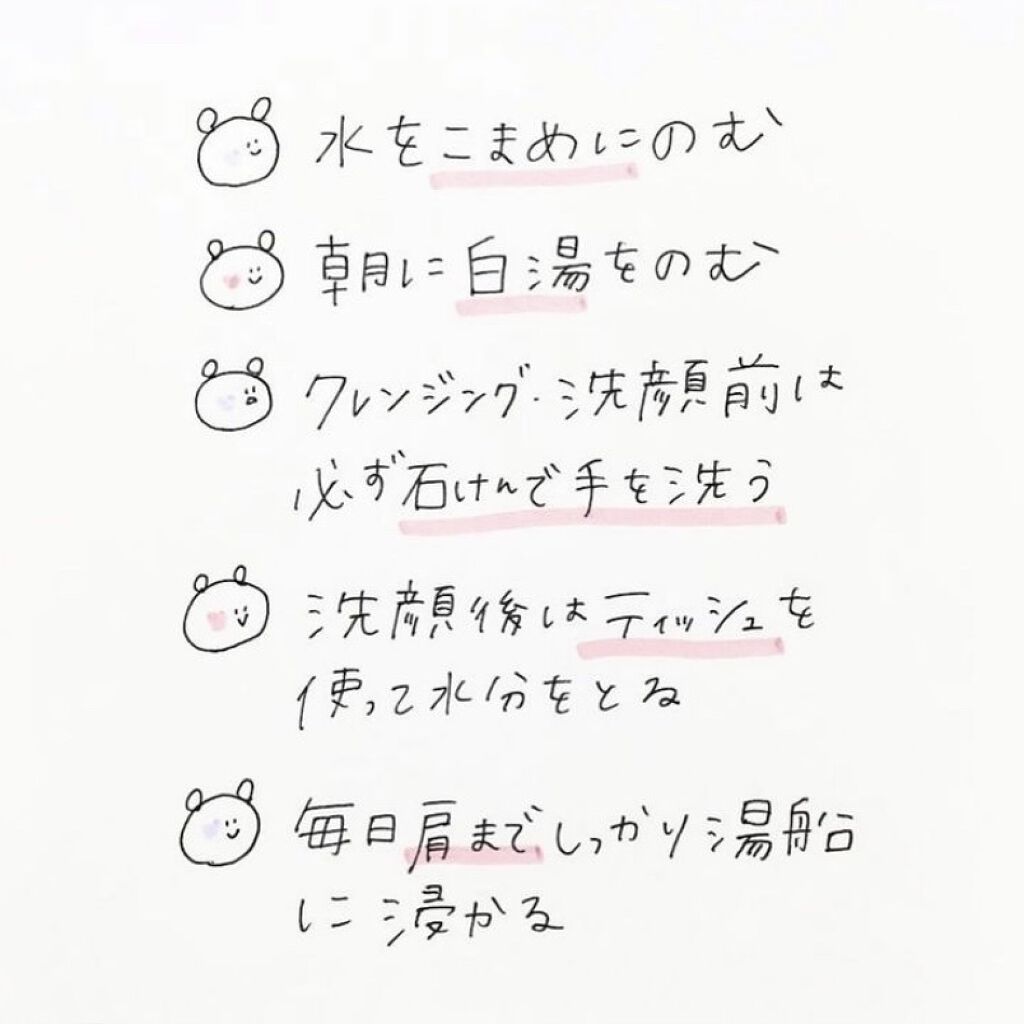 水をこまめにのむ
朝に白湯をのむ
クレンジング・洗顔前は
必ず石けんで手を洗う
洗顔後はティッシュを
使って水分をとる
毎日肩までしっかり湯船
に浸かる